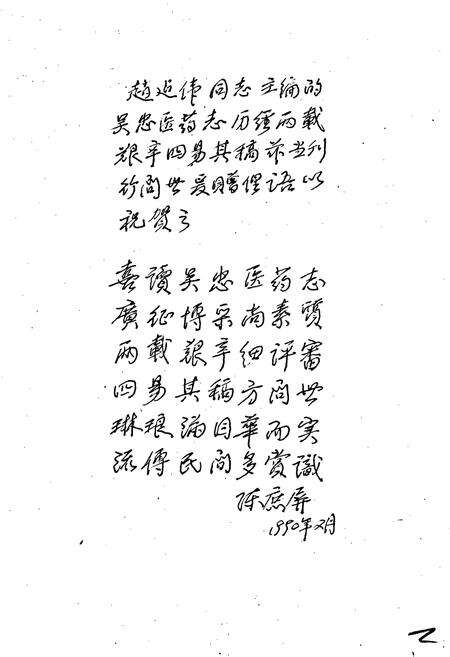 趙延伟同志主编的
吴忠医药志历经两载
艱辛四易其稿兹当刊
行问世爰赠俚语以
祝贺之
喜讀吴忠医药志
廣征博采尚素質
两載艱辛细评審
四易其稿方问世
琳琅满目華而实
流傳民间多赏識
陈庶屏
1990年2月